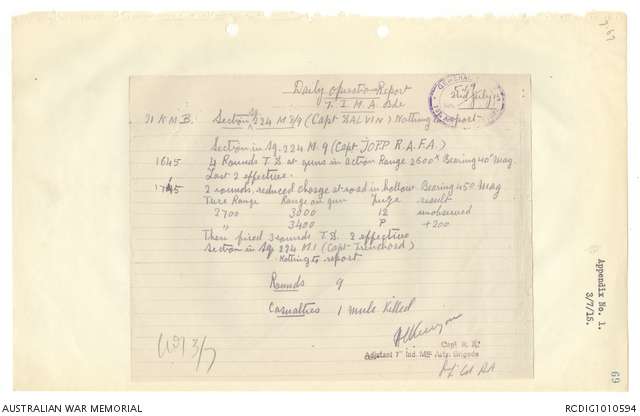 69
Daily Operation Report
7. I. M. A. Bde
GENERAL
2nd July
21 K.M.B. Section Sq 224 M 8/9 (Capt DALVIN) Nothing to report
Section in Sq. 224 M 9 (Capt JOPP R.A.F.A.)
1645 4 Rounds T.S. at guns in action Range 2600ˣ Bearing 40° Mag.
Last 2 effective.
2 rounds, reduced charge at road in hollow Bearing 45° Mag
True Range Range on gun Fuze result
2700 3000 12 unobserved
" 3400 P +200
Then fired 3 rounds T.S. 2 effective
Section in Sq. 224 M 1 (Capt Trenchard)
Nothing to report
Rounds 9
Casualties 1 mule killed
Capt R.A.
Adjutant 7th Ind. Mtn Arty. Brigade
3/7
Appendix No. 1.
3/7/15.
69
AUSTRALIAN WAR MEMORIAL
RCDIG1010594